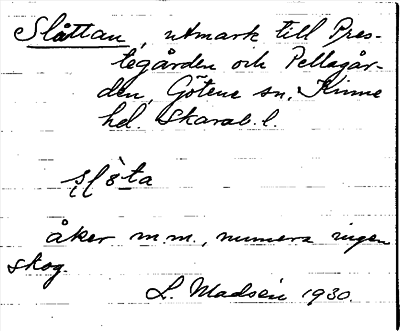 Slåttan, utmark till Pres-
tegården och Pellagår-
den, Götene sn, Kinne
hd. Skarab. l.
åker m.m., numera ingen
skog.
L. Madsén 1930.